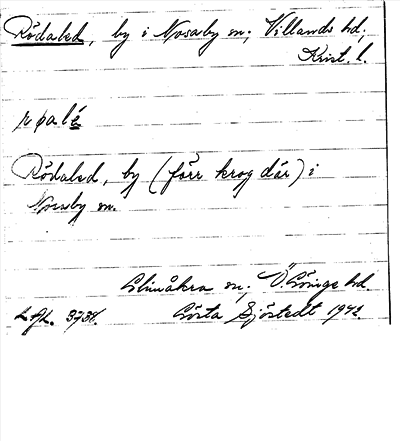 Rödaled, by i Nosaby sn; Villands hd;
Krist. l.
Rödaled, by (förr krog där) i
Nosaby sn.
Glimåkra sn; Ö. Göinge hd.
Gösta Sjöstedt 1942